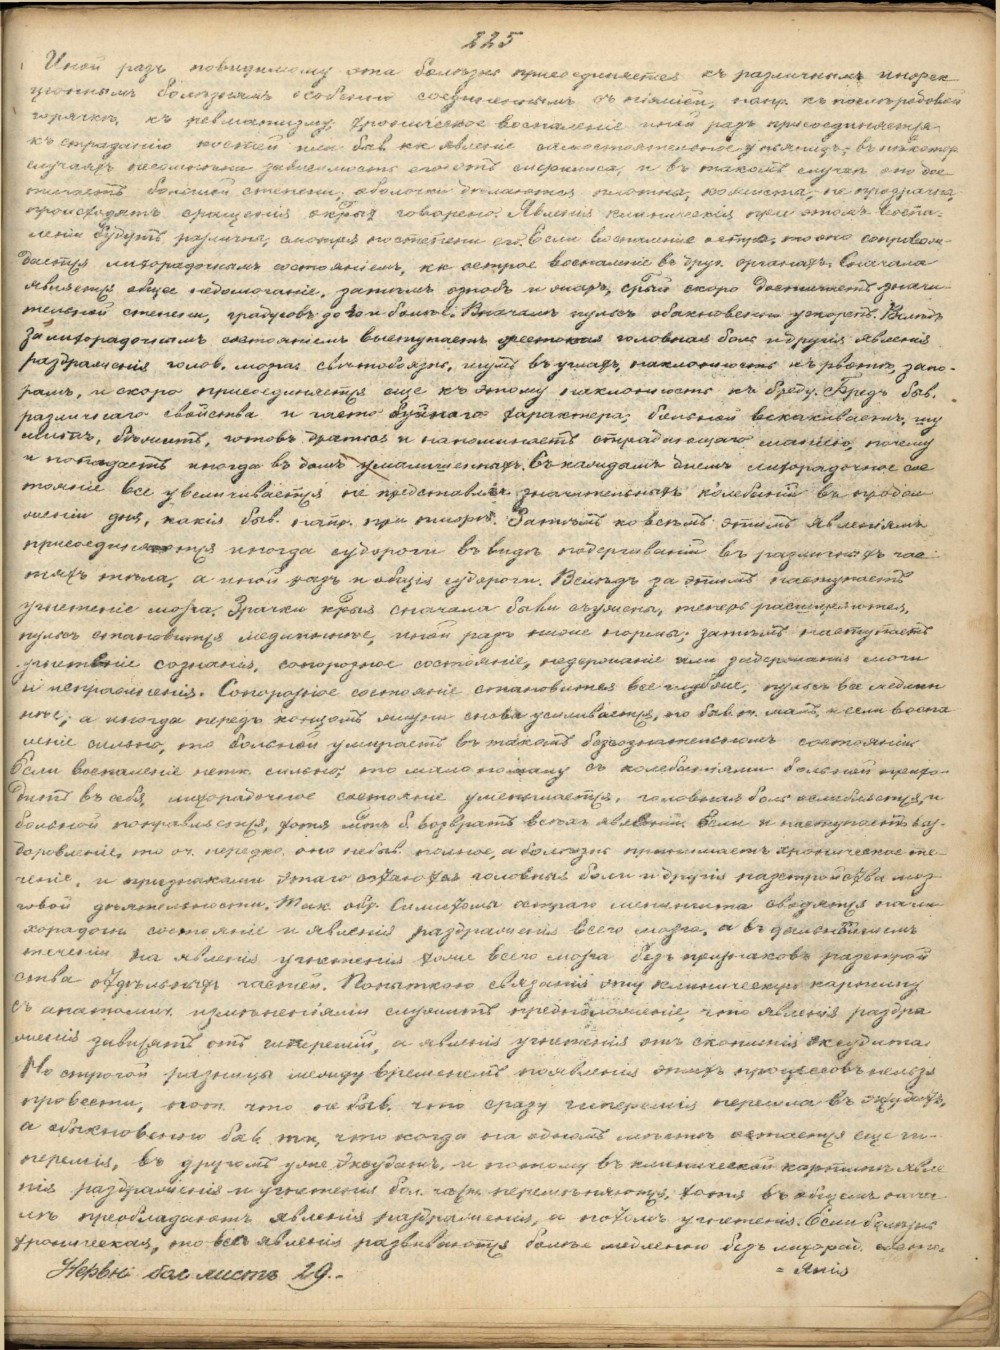 225
Иной разъ повидимому эта болѣзнь присоединяется къ различнымъ инфек
ціоннымъ болѣзнямъ особенно соединеннымъ съ піэміей, напр. къ послѣродовой
горячкѣ, къ ревматизму; хроническое воспаленіе иной разъ присоединяется
къ страданію костей или быв. кк явленіе самостоятельное у пьяницъ; въ нѣкотор
случаяхъ несомнѣнна зависимость его отъ сифилиса, и въ такомъ случаѣ оно дос
тигаетъ большой степени, оболочки дѣлаются плотны, кожисты, не прозрачны,
происходятъ сращенія о крыхъ говорено. Явленія клиническія при этомъ воспа-
леніи будутъ различны, смотря по степени его. Если воспаленіе остро, то оно сопровож-
дается лихорадочнымъ состояніемъ, кк острое воспаленіе въ друг. органахъ. Сначала
является общее недомоганіе, затѣмъ ознобъ и жаръ, крый скоро достигаетъ значи-
тельной степени, градусовъ до 40 и болѣе. Вначалѣ пульсъ обыкновенно ускоренъ. Вслѣдъ
за лихорадочнымъ состояніемъ выступаетъ жестокая головная боль и другія явленія
раздраженія голов. мозга: свѣтобоязнь, шумъ въ ушахъ, наклонность къ рвотѣ, запо-
рамъ, и скоро присоединяется еще къ этому наклонность къ бреду. Бредъ быв.
различнаго свойства и часто буйнаго характера; больной вскакиваетъ, шу
митъ, бѣжитъ, готовъ драться и напоминаетъ страдающаго маніею, почему
и попадаетъ иногда въ домъ умалишенныхъ. Съ каждымъ днемъ лихорадочное сос
тояніе все увеличивается не представляя значительныхъ колебаній въ продол
женіи дня, какія быв. напр. при тифѣ. Затѣмъ ко всѣмъ этимъ явленіямъ
присоединяются иногда судороги въ видѣ подергиваній въ различныхъ час
тяхъ тѣла, а иной разъ и общія судороги. Вслѣдъ за этимъ наступаетъ
угнетеніе мозга. Зрачки крые сначала были съужены, теперь расширяются,
пульсъ становится медленнѣе, иной разъ ниже нормы; затѣмъ наступаетъ
угнетеніе сознанія, сопорозное состояніе, недержаніе или задержаніе мочи
и испражненія. Сопорозное состояніе становится все глубже, пульсъ все медлен
нѣе; а иногда передъ концомъ жизни снова усиливается, но быв. оч. малъ, и если воспа
леніе сильно, то больной умираетъ въ такомъ безсознательномъ состояніи
Если воспаленіе не тк. сильно, то мало по малу съ колебаніями больной прихо-
дитъ въ себя, лихорадочное состояніе уменьшается, головная боль ослабляется, и
больной поправляется, хотя мтъ б. возвратъ всѣхъ явленій. Если и наступаетъ выз-
доровленіе, то оч. нерѣдко оно не быв. полное, а болѣзнь принимаетъ хроническое те-
ченіе, и признаками этаго остаются головныя боли и другія разстройства моз
говой дѣятельности. Так. обр. симптомы остраго менингита сводятся на ли-
хорадочн состояніе и явленія раздраженія всего мозга, а въ дальнѣйшемъ
теченіи на явленія угнетенія тоже всего мозга безъ признаковъ разстрой
ства отдѣльныхъ частей. Попыткою связанія эту клиническую картину
съ анатомич. измѣненіями служитъ предположеніе, что явленія раздра
женія зависятъ отъ гипереміи, а явленія угнетенія отъ скопленія эксудата.
Но строгой разницы между временемъ появленія этихъ процессовъ нельзя
провести, пот. что не быв. что сразу гиперемія перешла въ эксудатъ,
а обыкновенно быв. тк, что когда на одномъ мѣстѣ остается еще ги-
перемія, въ другомъ уже эксудатъ, и потому въ клинической картинѣ явле
нія раздраженія и угнетенія бол. част. перемѣняются, хотя въ общемъ нача
лѣ преобладаютъ явленія раздраженія, а потомъ угнетенія. Если болѣзнь
хроническая, то всѣ явленія развиваются болѣе медленно безъ лихорад. состо-
Нервн. бол. листъ 29.-
= янія